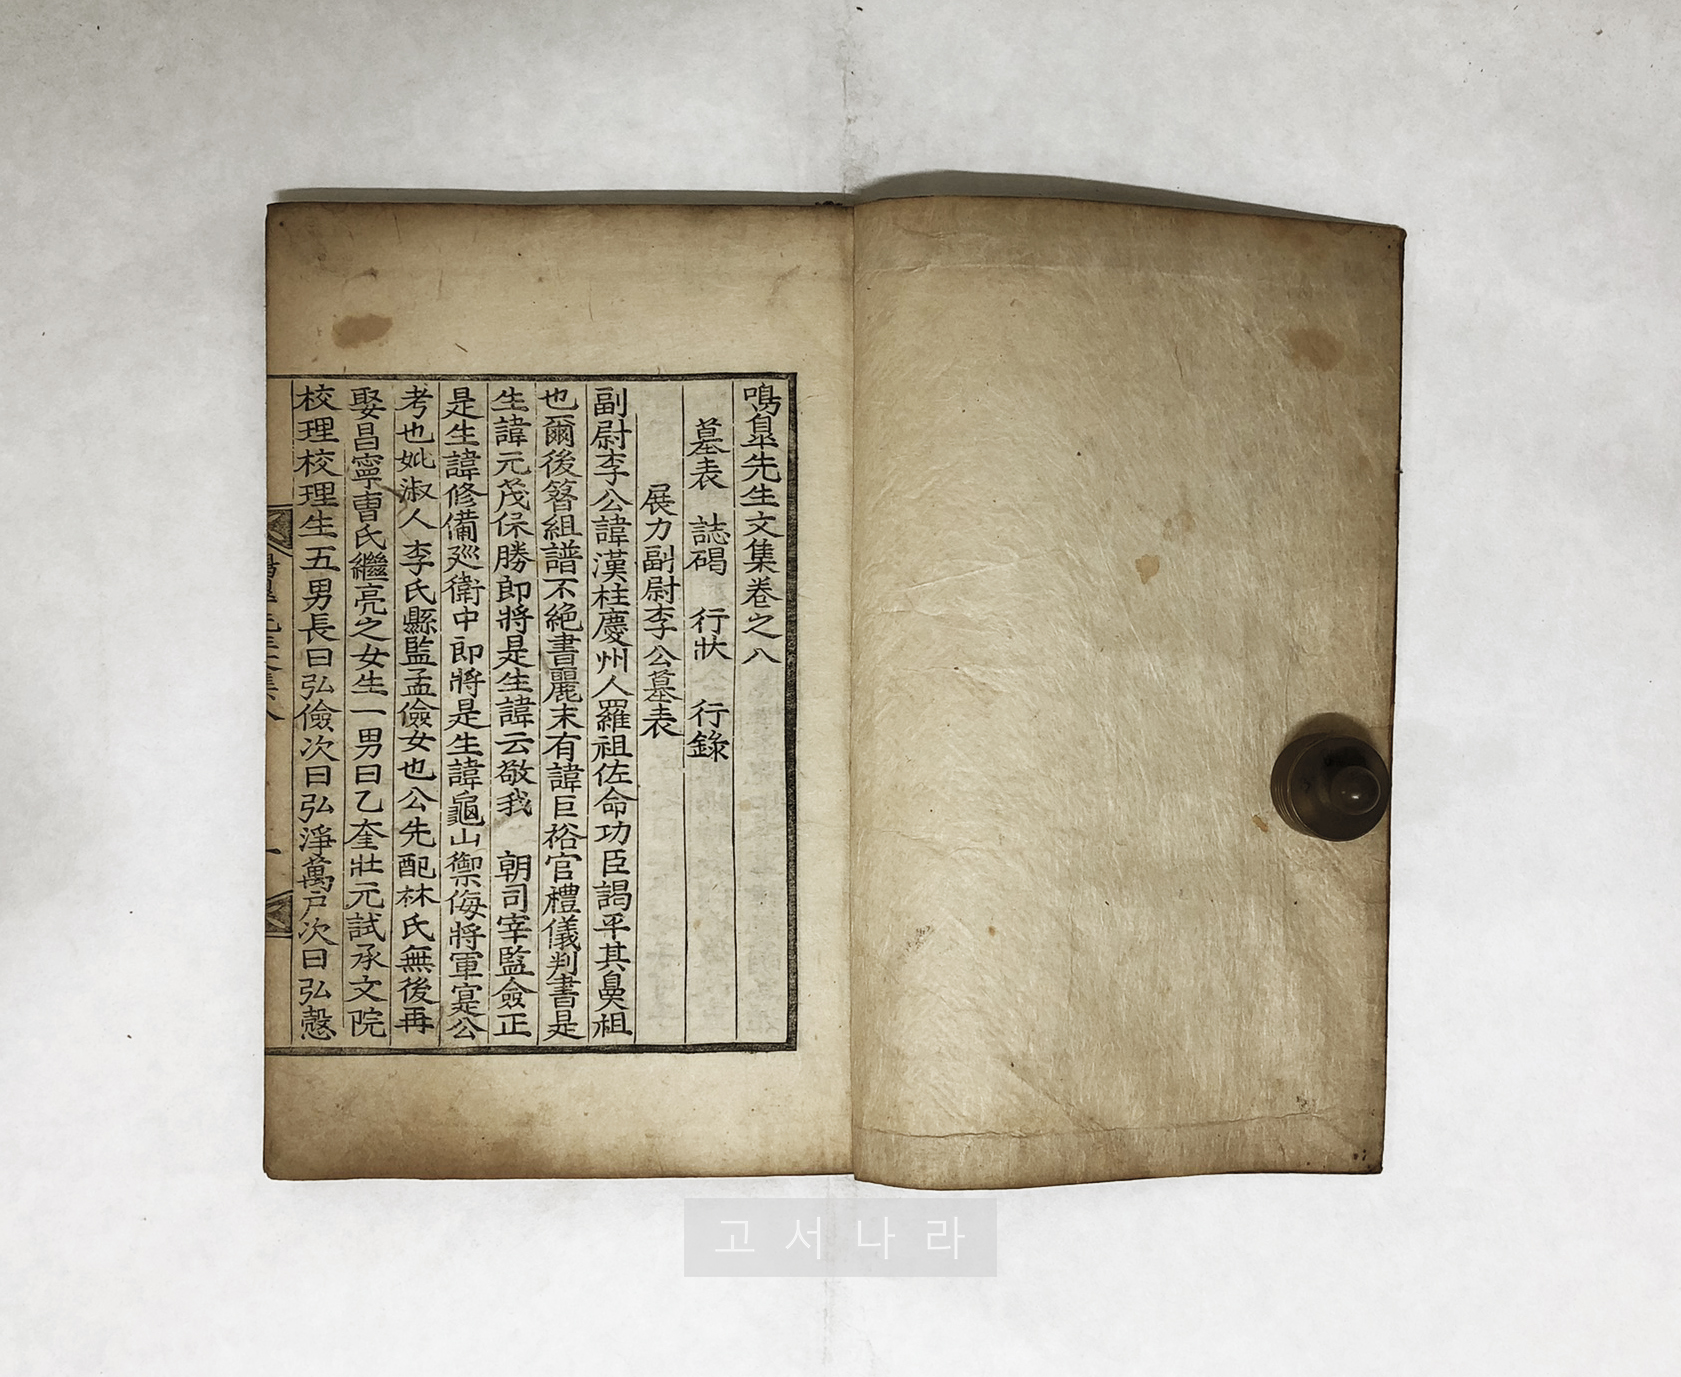 鳴臯先生文集卷之八
墓表 誌碣 行狀 行錄
展力副尉李公墓表
副尉李公諱漢柱慶州人羅祖佐命功臣謁平其鼻祖
也爾後簪組譜不絶書麗末有諱巨裕官禮儀判書是
生諱元茂保勝郎將是生諱云敬我 朝司宰監僉正
是生諱修備廵衛中郎將是生諱龜山禦侮將軍寔公
考也妣淑人李氏縣監孟儉女也公先配林氏無後再
娶昌寧曺氏繼亮之女生一男曰乙奎壯元試承文院
校理校理生五男長曰弘儉次曰弘淨萬戶次曰弘慤
고서나라